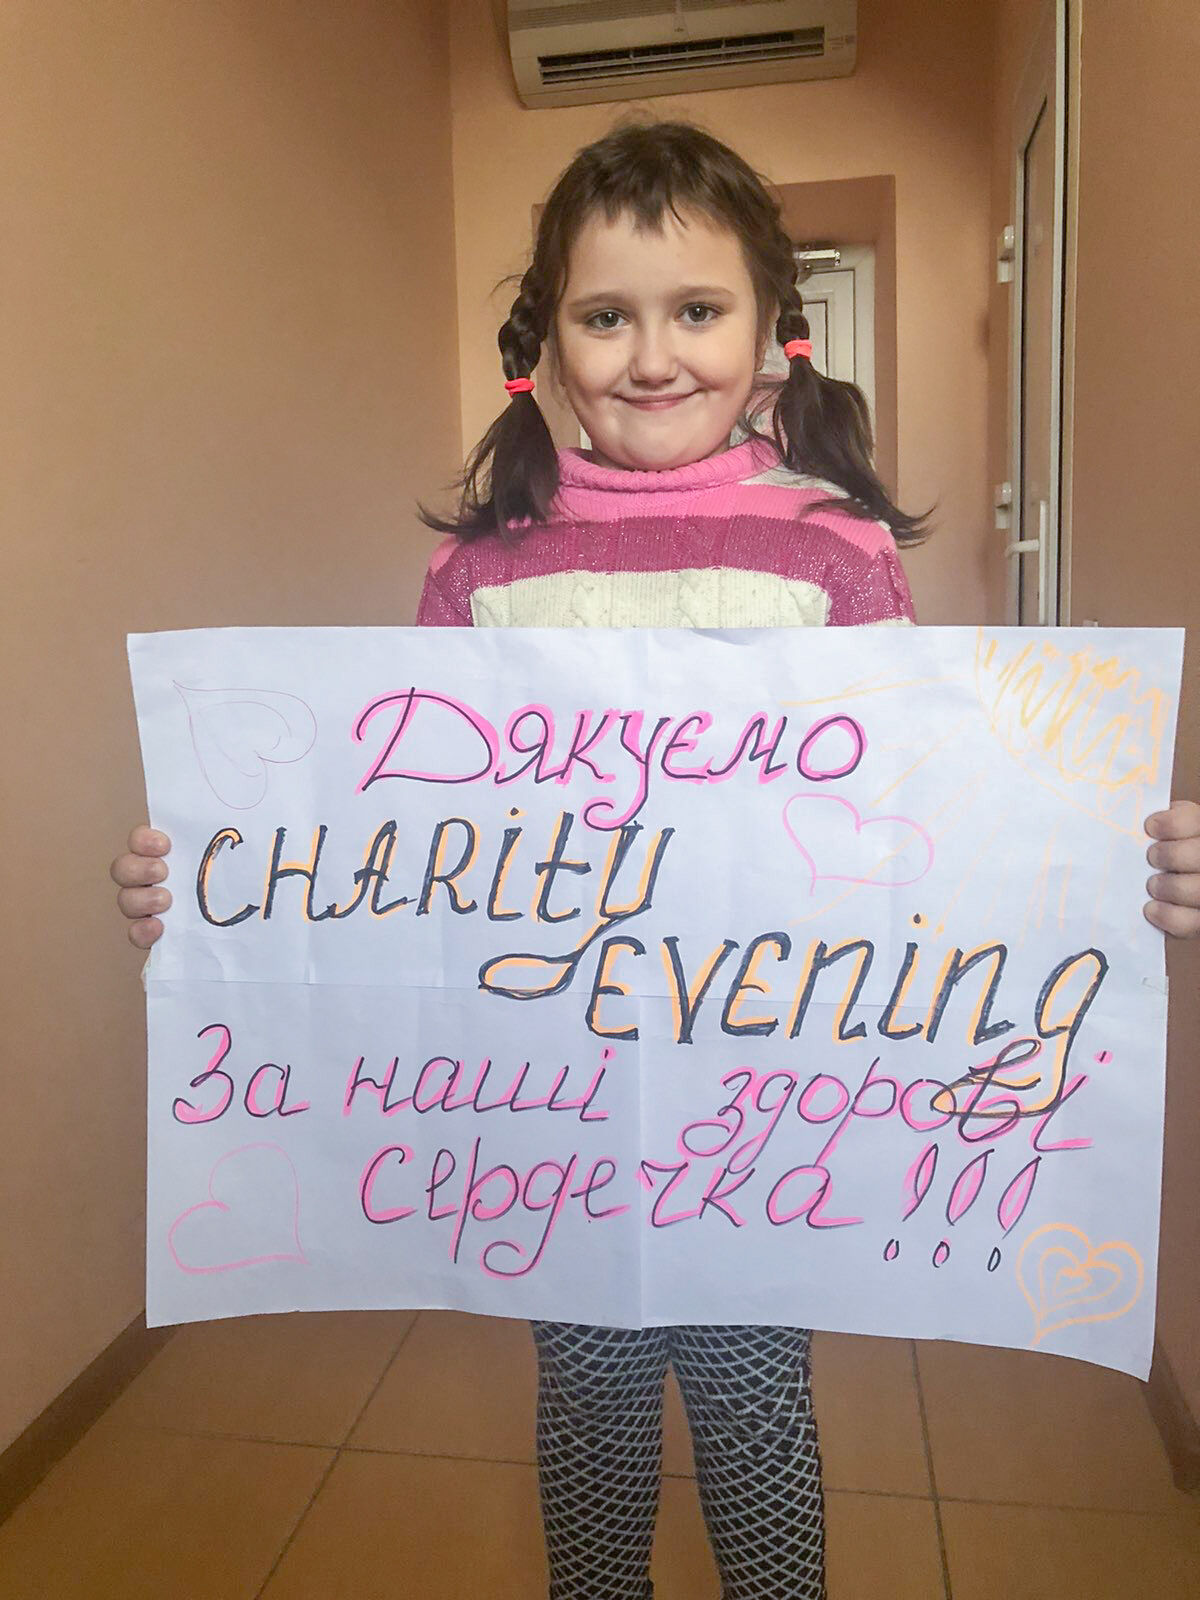 Дякуємо
CHARity
EVENiNg
За наші здорові
сердечка !!!